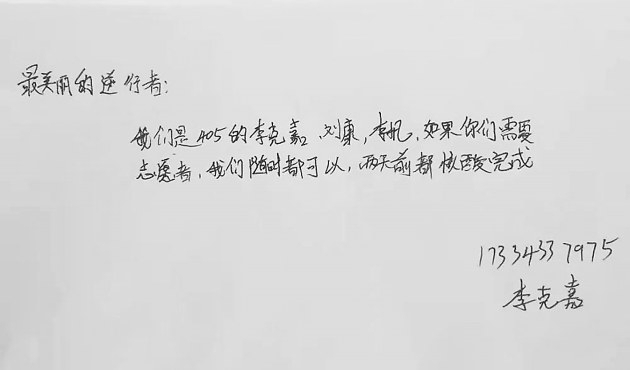 最美丽的逆行者:
我们是405的李克嘉,刘康,李帆,如果你们需要
志愿者,我们随时都可以,两天前都核酸完成
17334337975
李克嘉